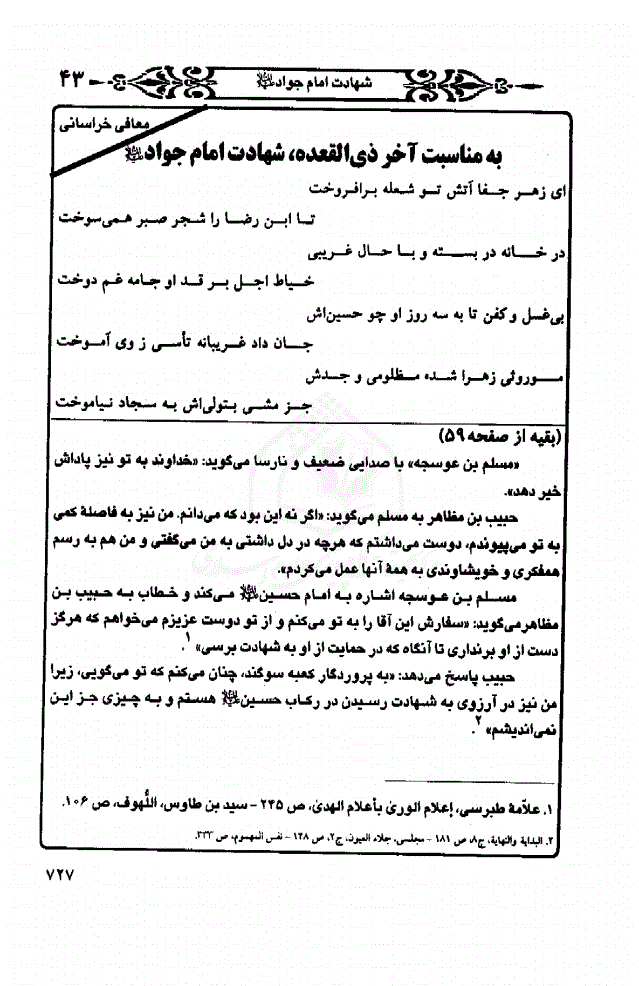 ۴۳
شهادت امام جواد
معافی خراسانی
به مناسبت آخر ذی‌القعده، شهادت امام جواد
ای زهـر جـفا آتش تـو شعله برافروخت
تـا ابـن رضـا را شجر صبر همی‌سوخت
در خـانه در بسـته و بـا حال غـریبی
خـیاط اجـل بـر قـد او جامه غـم دوخت
بی‌غسل و کفن تا به سه روز او چو حسین‌اش
جـان داد غـریبانه تأسـی ز وی آمـوخت
مـوروثی زهـرا شـده مـظلومی و جـدش
جـز مشـی بـتولی‌اش بـه سـجاد نیاموخت
(بقیه از صفحه ۵۹)
«مسلم بن عوسجه» با صدایی ضعیف و نارسا می‌گوید: «خداوند به تو نیز پاداش
خیر دهد».
حبیب بن مظاهر به مسلم می‌گوید: «اگر نه این بود که می‌دانم، من نیز به فاصلهٔ کمی
به تو می‌پیوندم، دوست می‌داشتم که هرچه در دل داشتی به من می‌گفتی و من هم به رسم
همفکری و خویشاوندی به همهٔ آنها عمل می‌کردم».
مسلم بن عوسجه اشاره به امام حسین می‌کند و خطاب به حبیب بن
مظاهر می‌گوید: «سفارش این آقا را به تو می‌کنم و از تو دوست عزیزم می‌خواهم که هرگز
دست از او برنداری تا آنگاه که در حمایت از او به شهادت برسی» ۱.
حبیب پاسخ می‌دهد: «به پروردگار کعبه سوگند، چنان می‌کنم که تو می‌گویی، زیرا
من نیز در آرزوی به شهادت رسیدن در رکاب حسین هستم و به چیزی جز این
نمی‌اندیشم» ۲.
۱. علّامهٔ طبرسی، إعلام الوریٰ بأعلام الهدیٰ، ص ۲۴۵ - سید بن طاوس، اللُّهوف، ص ۱۰۶.
۲. البدایة والنهایة، ج۸، ص ۱۸۱ - مجلسی، جلاء العیون، ج۲، ص ۱۲۸ - نفس المهموم، ص ۳۳۳.
۷۲۷